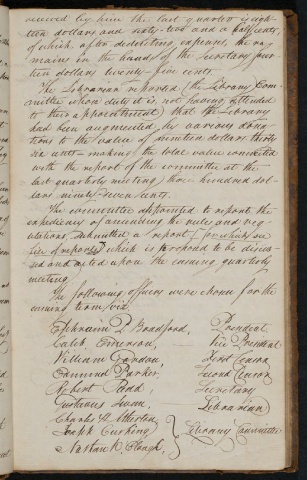 ceived by him the last quarter is eigh-
teen dollars and sixty-two and a half cents,
of which, after deducting expenses, there re-
mains in the hands of the Secretary four-
teen dollars twenty-five cents.
The Librarian reported (the Library Com-
mittee whose duty it is, not having attended
to their appointment) that the Library
had been augmented by various dona-
tions to the value of nineteen dollars thirty
six cents making the total value connected
with the report of the committee at the
last quarterly meeting, three hundred dol-
lars ninety seven cents.
The committee appointed to report the
expediency of amending the rules and reg-
ulations, submitted a report (for which see
file of reports) which is proposed to be discus-
sed and acted upon the ensuing quarterly
meeting.
The following officers were chosen for the
ensuing term, viz.
Ephraim P. Bradford, President
Caleb Emerson, Vice President
William Gordon, First Censor
Edmund Parker, Second Censor
Robert Secretary
Gustavus Swan, Librarian
Charles H. Atherton,
Joseph Cushing, Library Committee
Nathan K. Clough,